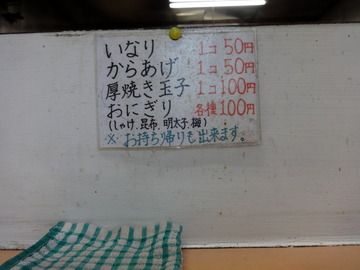 いなり 1コ50円
からあげ 1コ50円
厚焼き玉子 1コ100円
おにぎり 各種100円
(しゃけ.昆布.明太子.梅)
※ お持ち帰りも出来ます。